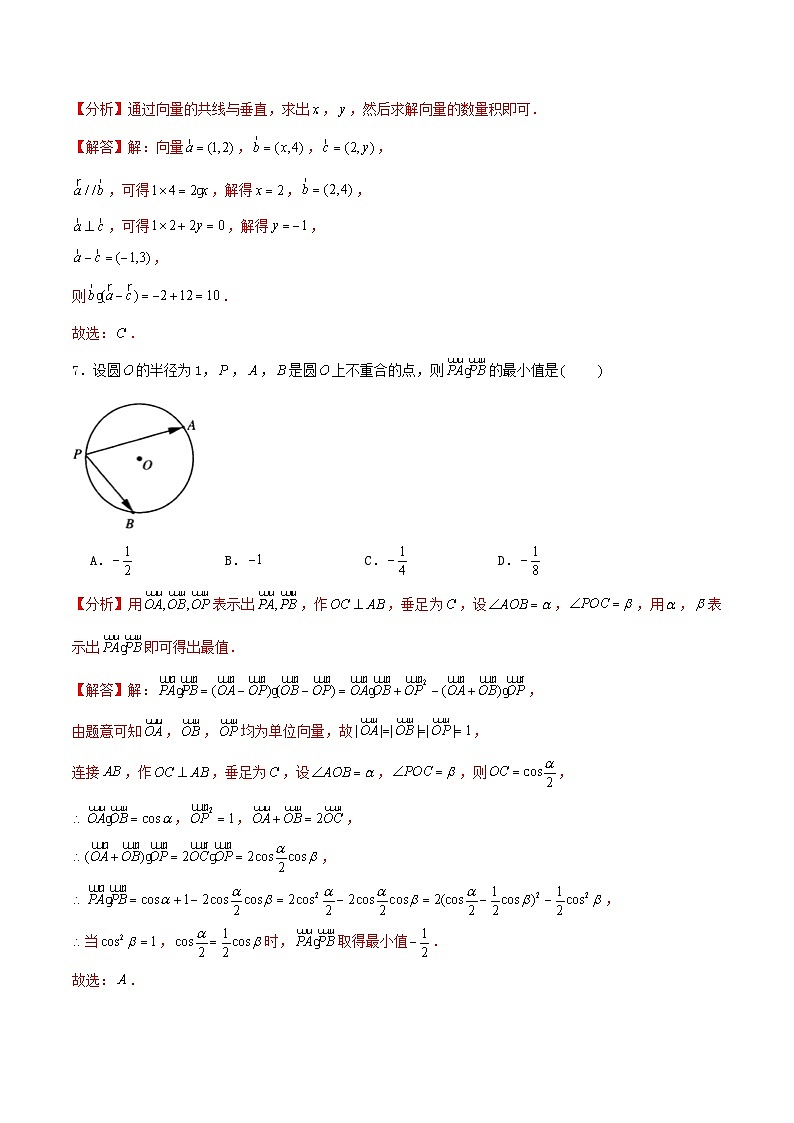 【分析】通过向量的共线与垂直,求出 x , y ,然后求解向量的数量积即可.
【解答】解:向量 a = (1,2) , b = (x,4) , c = (2,y) ,
a / / b ,可得 1×4 = 2gx ,解得 x = 2 , b = (2,4) ,
a ⊥ c ,可得 1×2 + 2y = 0 ,解得 y = −1 ,
a − c = (−1,3) ,
则 bg(a − c) = −2 + 12 = 10 .
故选: C .
7.设圆 O 的半径为 1, P , A , B 是圆 O 上不重合的点,则 PAgPB 的最小值是 ( )
A
P
O
B
A. −1/2 B. −1 C. −1/4 D. −1/8
【分析】用 OA, OB, OP 表示出 PA, PB ,作 OC ⊥ AB ,垂足为 C ,设 ∠AOB = α , ∠POC = β ,用 α , β 表
示出 PAgPB 即可得出最值.
【解答】解: PAgPB = (OA − OP)g(OB − OP) = OAgOB + OP² − (OA + OB)gOP ,
由题意可知 OA , OB , OP 均为单位向量,故 | OA |=| OB |=| OP |= 1 ,
连接 AB ,作 OC ⊥ AB ,垂足为 C ,设 ∠AOB = α , ∠POC = β ,则 OC = cos α/2 ,
∴ OAgOB = cos α , OP² = 1 , OA + OB = 2OC ,
∴ (OA + OB)gOP = 2OCgOP = 2cos α/2 cos β ,
∴ PAgPB = cos α + 1 − 2cos α/2 cos β = 2cos² α/2 − 2cos α/2 cos β = 2(cos α/2 − 1/2 cos β)² − 1/2 cos² β ,
∴ 当 cos² β = 1 , cos α/2 = 1/2 cos β 时, PAgPB 取得最小值 −1/2 .
故选: A .